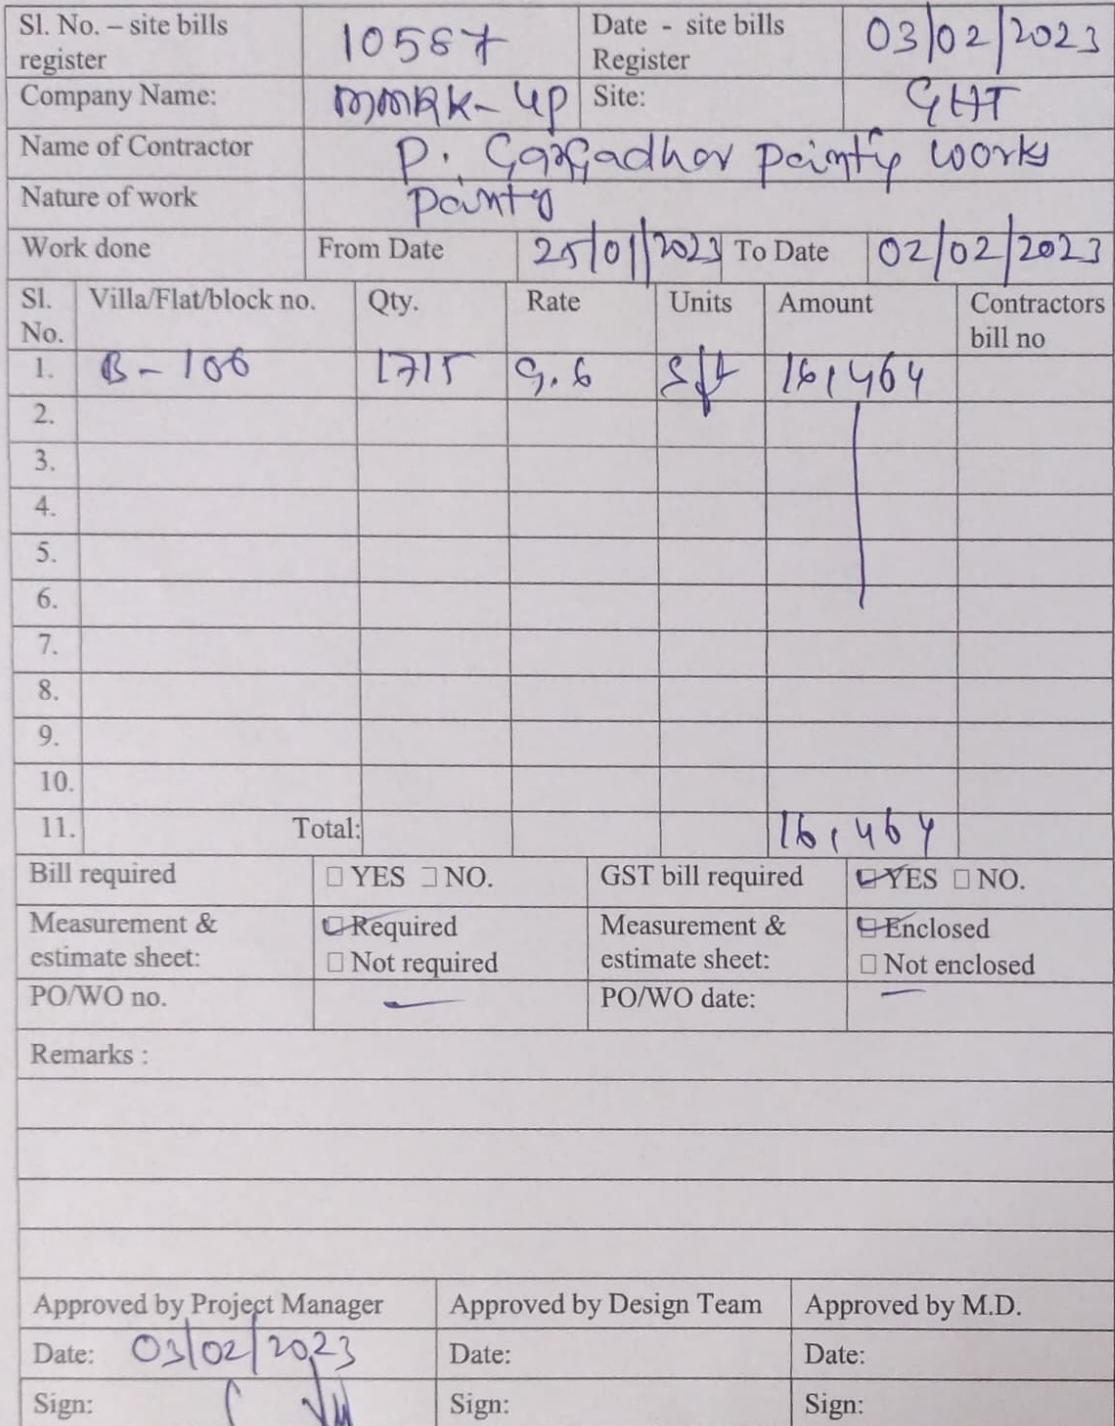 Sl. No. – site bills register 10587 Date - site bills Register 03/02/2023
Company Name: MMRK-UP Site: GHT
Name of Contractor P. Gangadhar painting works
Nature of work Painting
Work done From Date 25/01/2023 To Date 02/02/2023
Sl. No. Villa/Flat/block no. Qty. Rate Units Amount Contractors bill no
1. B-106 1715 9.6 Sft 16,464
2.
3.
4.
5.
6.
7.
8.
9.
10.
11. Total: 16,464
Bill required □ YES □ NO. GST bill required ☑ YES □ NO.
Measurement & estimate sheet: ☑ Required □ Not required Measurement & estimate sheet: ☑ Enclosed □ Not enclosed
PO/WO no. — PO/WO date: —
Remarks :
Approved by Project Manager Approved by Design Team Approved by M.D.
Date: 03/02/2023 Date: Date:
Sign: Sign: Sign: